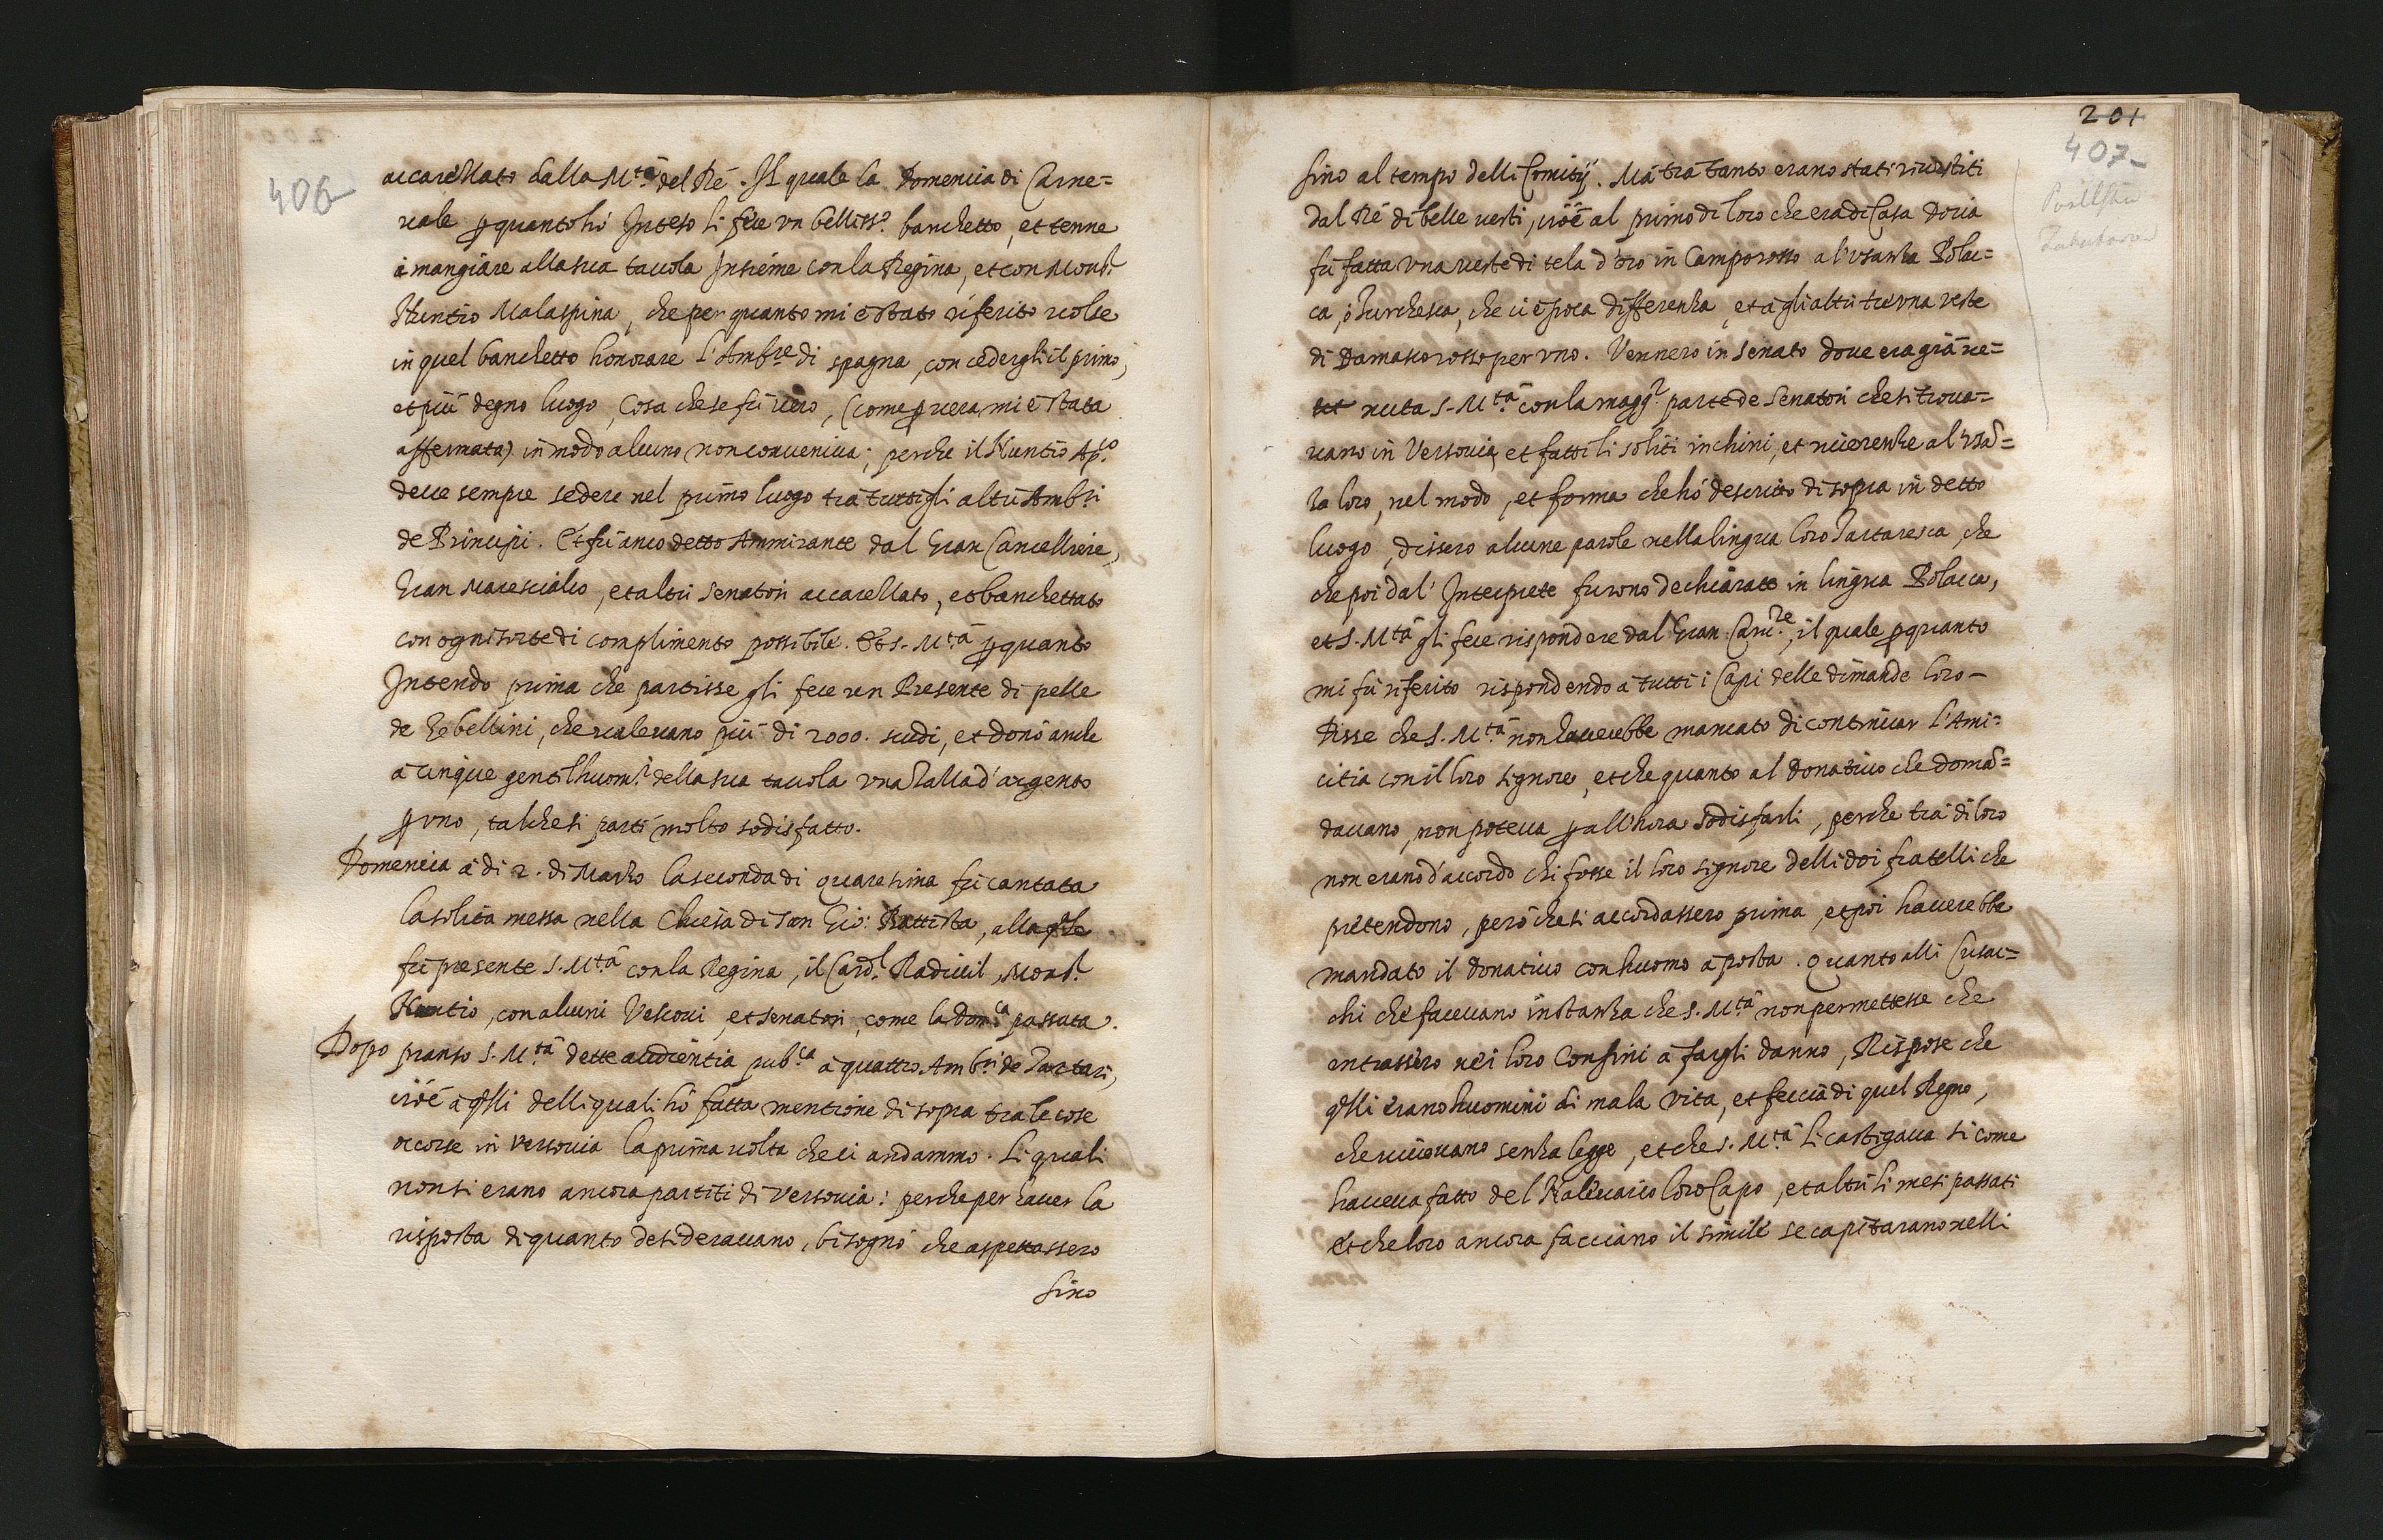 406
accarezzato dalla M.tà del Rè. Il quale la Domenica di Carne=
uale p quanto hò Inteso li fece vn belliss.o banchetto, et tenne
à mangiare alla sua tauola Insieme con la Regina, et con Mons.r
Nuntio Malaspina, che per quanto mi è stato riferito uolse
in quel banchetto honorare l'Amb.re di spagna, con cedergli il primo,
et più degno luogo, Cosa che se fù uero, (come p uera mi è stata
affermata) in modo alcuno non conueniua; perche il Nuntio Ap.co
deue sempre sedere nel primo luogo trà tutti gli altri Amb.ri
de Principi. Et fù anco detto Ammirante dal Gran Cancelliere,
Gran Marescialco, et altri senatori accarezzato, et banchettato
con ogni sorte di complimento possibile. Et S. M.tà p quanto
Intendo prima che partisse gli fece un Presente di pelle
de Zebellini, che ualeuano più di 2000. scudi, et donò anche
à cinque gentilhuom.i della sua tauola vna Tazza d'argento
p vno, talche si partì molto sodisfatto.
Domenica à di 2. di Marzo la seconda di quaresima fù cantata
la solita messa nella Chiesa di san Gio: Battista, alla qle
fù presente S. M.tà con la Regina, il Card.l Radiuil, Mons.r
Nuntio, con alcuni Vescoui, et senatori, come la Dom.ca passata.
Dopo pranso S. M.tà dette audientia pub.ca à quattro Amb.ri de Tartari,
cioè à qlli delli quali hò fatta mentione di sopra tra le cose
occorse in Versouia la prima uolta che ci andammo. Li quali
non si erano ancora partiti di Versouia: perche per hauer la
risposta di quanto desiderauano, bisognò che aspettassero
sino
201
407
sino al tempo delli Comitij. Mà trà tanto erano stati riuestiti
dal Rè di belle uesti, cioè al primo di loro che era di Casa Doria
fù fatta vna ueste di tela d'oro in Camporosso a l'vsanza Polac=
ca, ò Turchesca, che ci è poca differenza, et à gli altri tre vna veste
di Damasco rosso per vno. Vennero in senato doue era già ue=
nuta S. M.tà con la magg.r parte de senatori che si troua=
uano in Versouia, et fatti li soliti inchini, et riuerenze al'vsā=
za loro, nel modo, et forma che hò descritto di sopra in detto
luogo, dissero alcune parole nella lingua loro Tartaresca, che
che poi dal' Interprete furono dechiarate in lingua Polacca,
et S. M.tà gli fece rispondere dal Gran Canc.re, il quale p quanto
mi fù riferito rispondendo à tutti i Capi delle dimande loro
Disse che S. M.tà non hauerebbe mancato di continuar l'Ami=
citia con il loro signore, et che quanto al Donatiuo che domā=
dauano, non poteua p all'hora sodisfarli, perche trà di loro
non erano d'accordo chi fosse il loro signore delli doi fratelli che
pretendono, però che si accordassero prima, et poi hauerebbe
mandato il donatiuo con huomo à posta. Quanto alli Cusac=
chi che faceuano instanza che S. M.tà non permettesse che
entrassero nei loro Confini à fargli danno, Rispose che
qlli erano huomini di mala vita, et feccia di quel Regno,
che uiueuano senza legge, et che S. M.tà li castigaua si come
haueua fatto del Naliuaico loro Capo, et altri li mesi passati
et che loro ancora facciano il simile se capitarano nelli